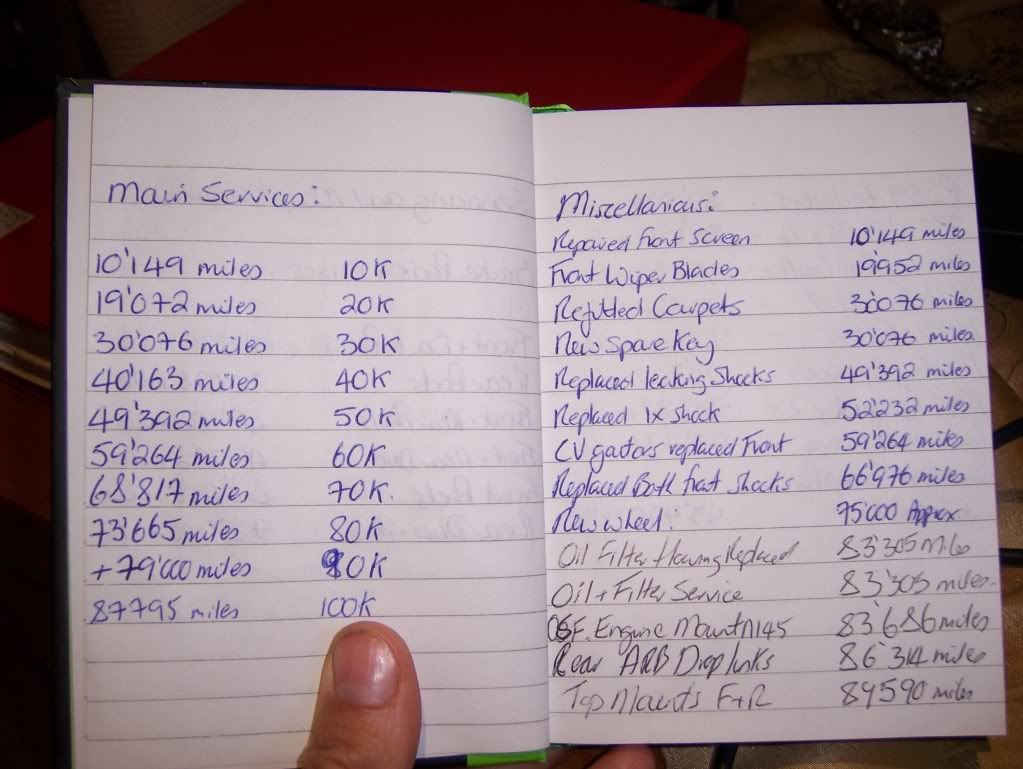 Main Services:
10'149 miles 10K
19'072 miles 20K
30'076 miles 30K
40'163 miles 40K
49'392 miles 50K
59'264 miles 60K
68'817 miles 70K.
73'665 miles 80K
+79'000 miles 90K
87795 miles 100K
Miscellanious:
Repaired Front Screen 10'149 miles
Front Wiper Blades 19'952 miles
Refitted Carpets 30'076 miles
New Spare Key 30'076 miles
Replaced leaking Shocks 49'392 miles
Replaced 1x shock 52'232 miles
CV gaitors replaced Front 59'264 miles
Replaced Both front shocks 66'976 miles
New wheel. 75'000 Approx
Oil Filter Housing Replaced 83'305 Miles
Oil + Filter Service 83'305 miles.
OSF. Engine Mount 83'686 miles
Rear ARB Droplinks 86'314 miles
Top Mounts F+R 89590 miles